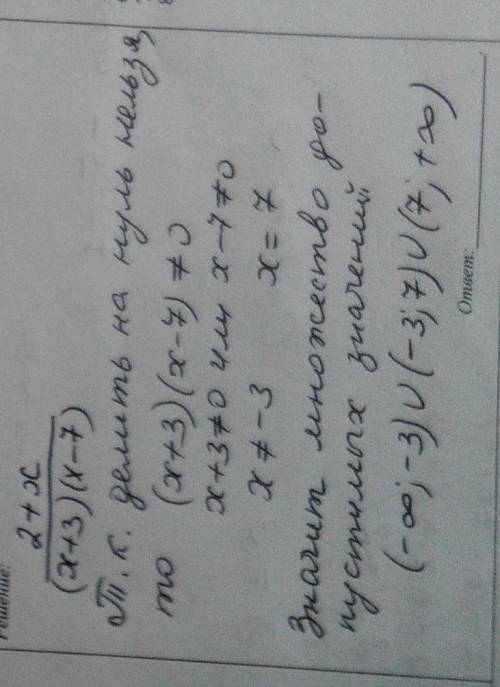 Решение:
2+x
(x+3)(x-7)
Т. к. делить на нуль нельзя,
то (x+3)(x-7)≠0
x+3≠0 или x-7≠0
x≠-3 x=7
Значит множество до-
пустимых значений
(-∞;-3)∪(-3;7)∪(7;+∞)
Ответ: